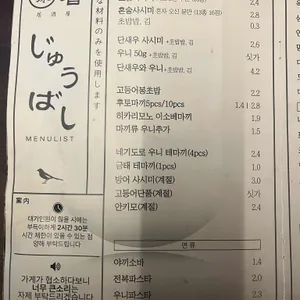 居酒屋
じゅうばし
MENULIST
な材料のみを使用します
案内
대기인원이 많을 시에는
부득이하게 2시간 30분
시간 제한이 있을 수 있는 점
양해 부탁드립니다
가게가 협소하다보니
너무 큰소리는
자제 부탁드리겠습니다
혼술사시미 혼자 오신 분만 (13종 16점)
초밥밥, 김 2.8
단새우 사시미 +초밥밥, 김 2.4
우니 50g +초밥밥, 김 싯가
단새우와 우니 +초밥밥, 김 4.2
고등어봉초밥 2.2
후토마끼5pcs/10pcs 1.4 | 2.8
히카리모노 이소베마끼 1.9
마끼류 우니추가 1.5
네기도로 우니 테마끼(4pcs) 2.4
금태 테마끼(1pcs) 1.0
방어 사시미(계절) 3.0
고등어단품(계절) 싯가
안키모(계절) 2.4
면류
야끼소바 1.4
전복파스타 2.0
우니파스타 2.3